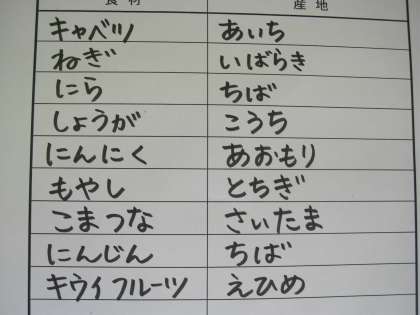 食材 産地
キャベツ あいち
ねぎ いばらき
にら ちば
しょうが こうち
にんにく あおもり
もやし とちぎ
こまつな さいたま
にんじん ちば
キウイフルーツ えひめ